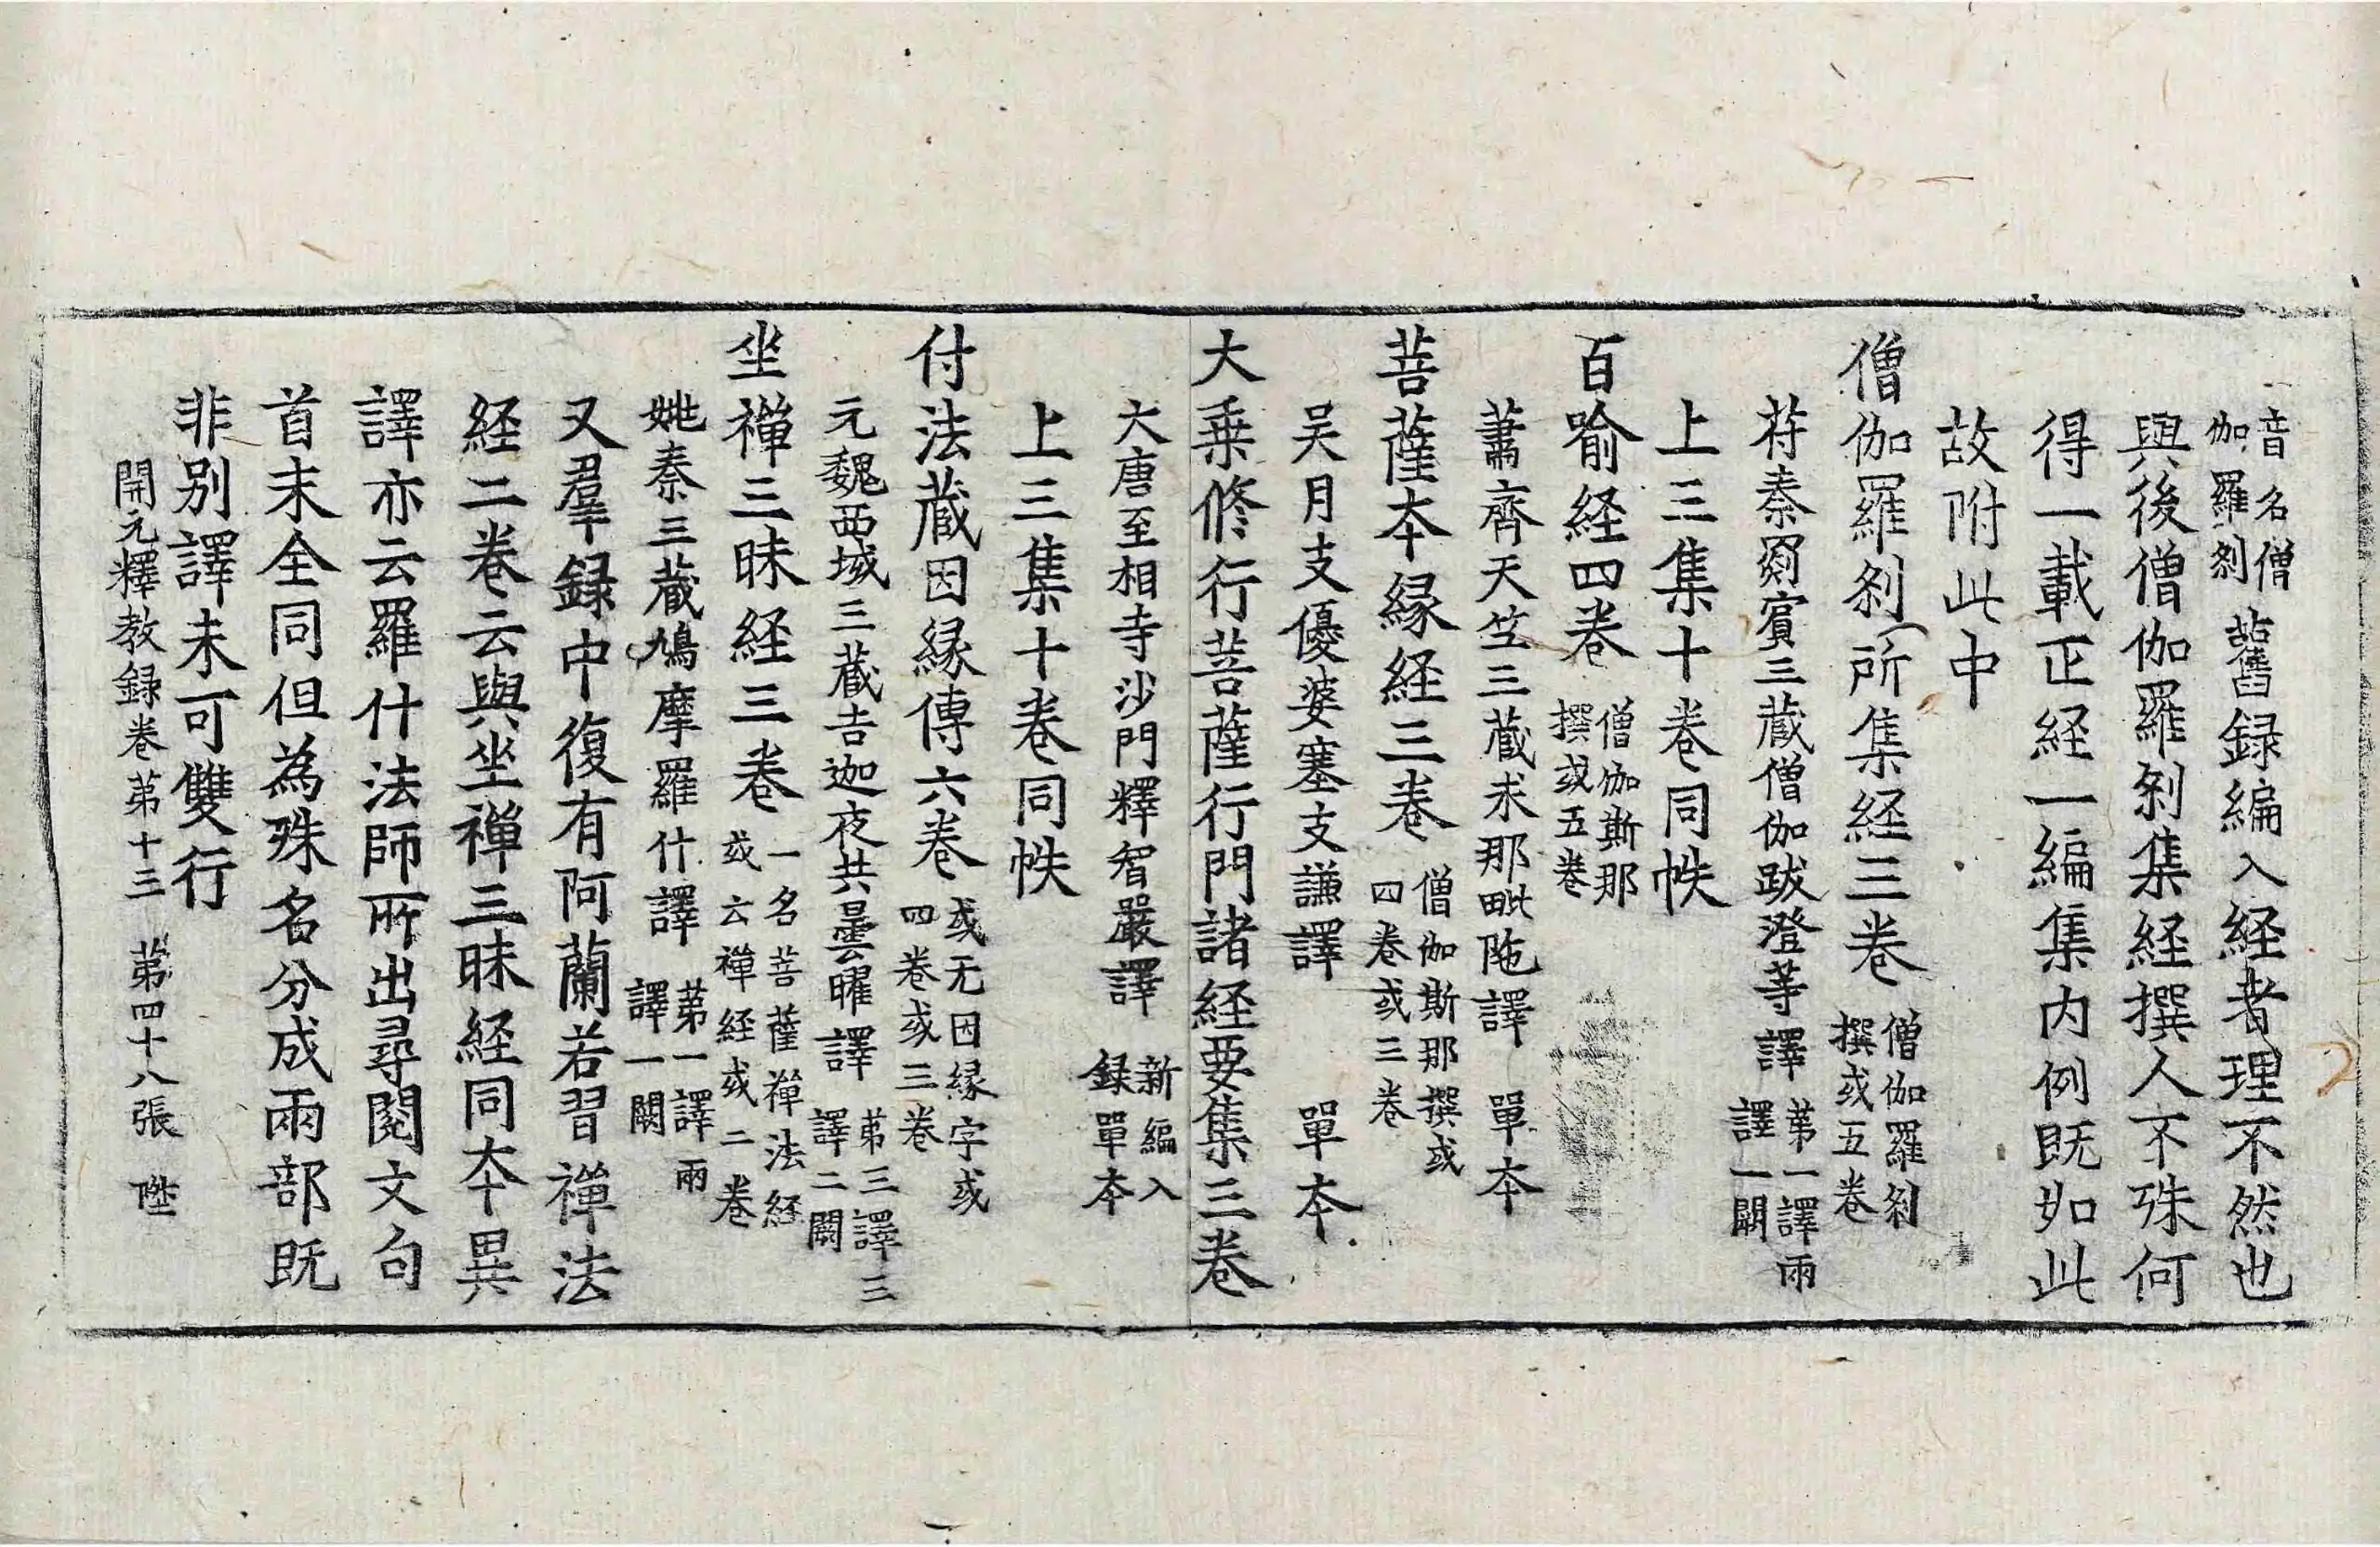 音名僧伽羅刹舊録編入経者理不然也
與後僧伽羅刹集経撰人不殊何
得一載正経一編集内例既如此
故附此中
僧伽羅刹所集経三卷僧伽羅刹撰或五卷
苻秦罽賓三藏僧伽跋澄等譯第一譯兩譯一闕
上三集十卷同帙
百喻経四卷僧伽斯那撰或五卷
蕭齊天竺三藏求那毗陁譯單本
菩薩本縁経三卷僧伽斯那撰或四卷或三卷
吴月支優婆塞支謙譯單本
大乗修行菩薩行門諸経要集三卷
大唐至相寺沙門釋智嚴譯新編入録單本
上三集十卷同帙
付法藏因縁傳六卷或无因縁字或四卷或三卷
元魏西域三藏吉迦夜共曇曜譯第三譯三譯二闕
坐禅三昧経三卷一名菩薩禅法経或云禅経或二卷
姚秦三藏鳩摩羅什譯第一譯兩譯一闕
又羣録中復有阿蘭若習禅法
経二卷云與坐禅三昧経同本異
譯亦云羅什法師所出尋閱文句
首末全同但為殊名分成兩部既
非别譯未可雙行
開元釋教録卷第十三 第四十八張 陞